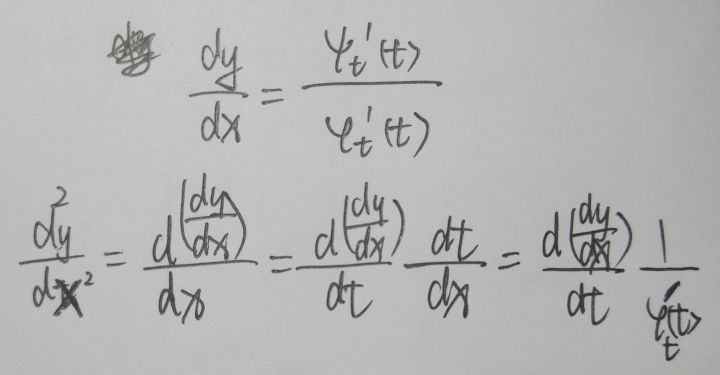 dy/dx = ψ't(t)/φ't(t)
d²y/dx² = d(dy/dx)/dx = d(dy/dx)/dt dt/dx = d(dy/dx)/dt 1/φ't(t)